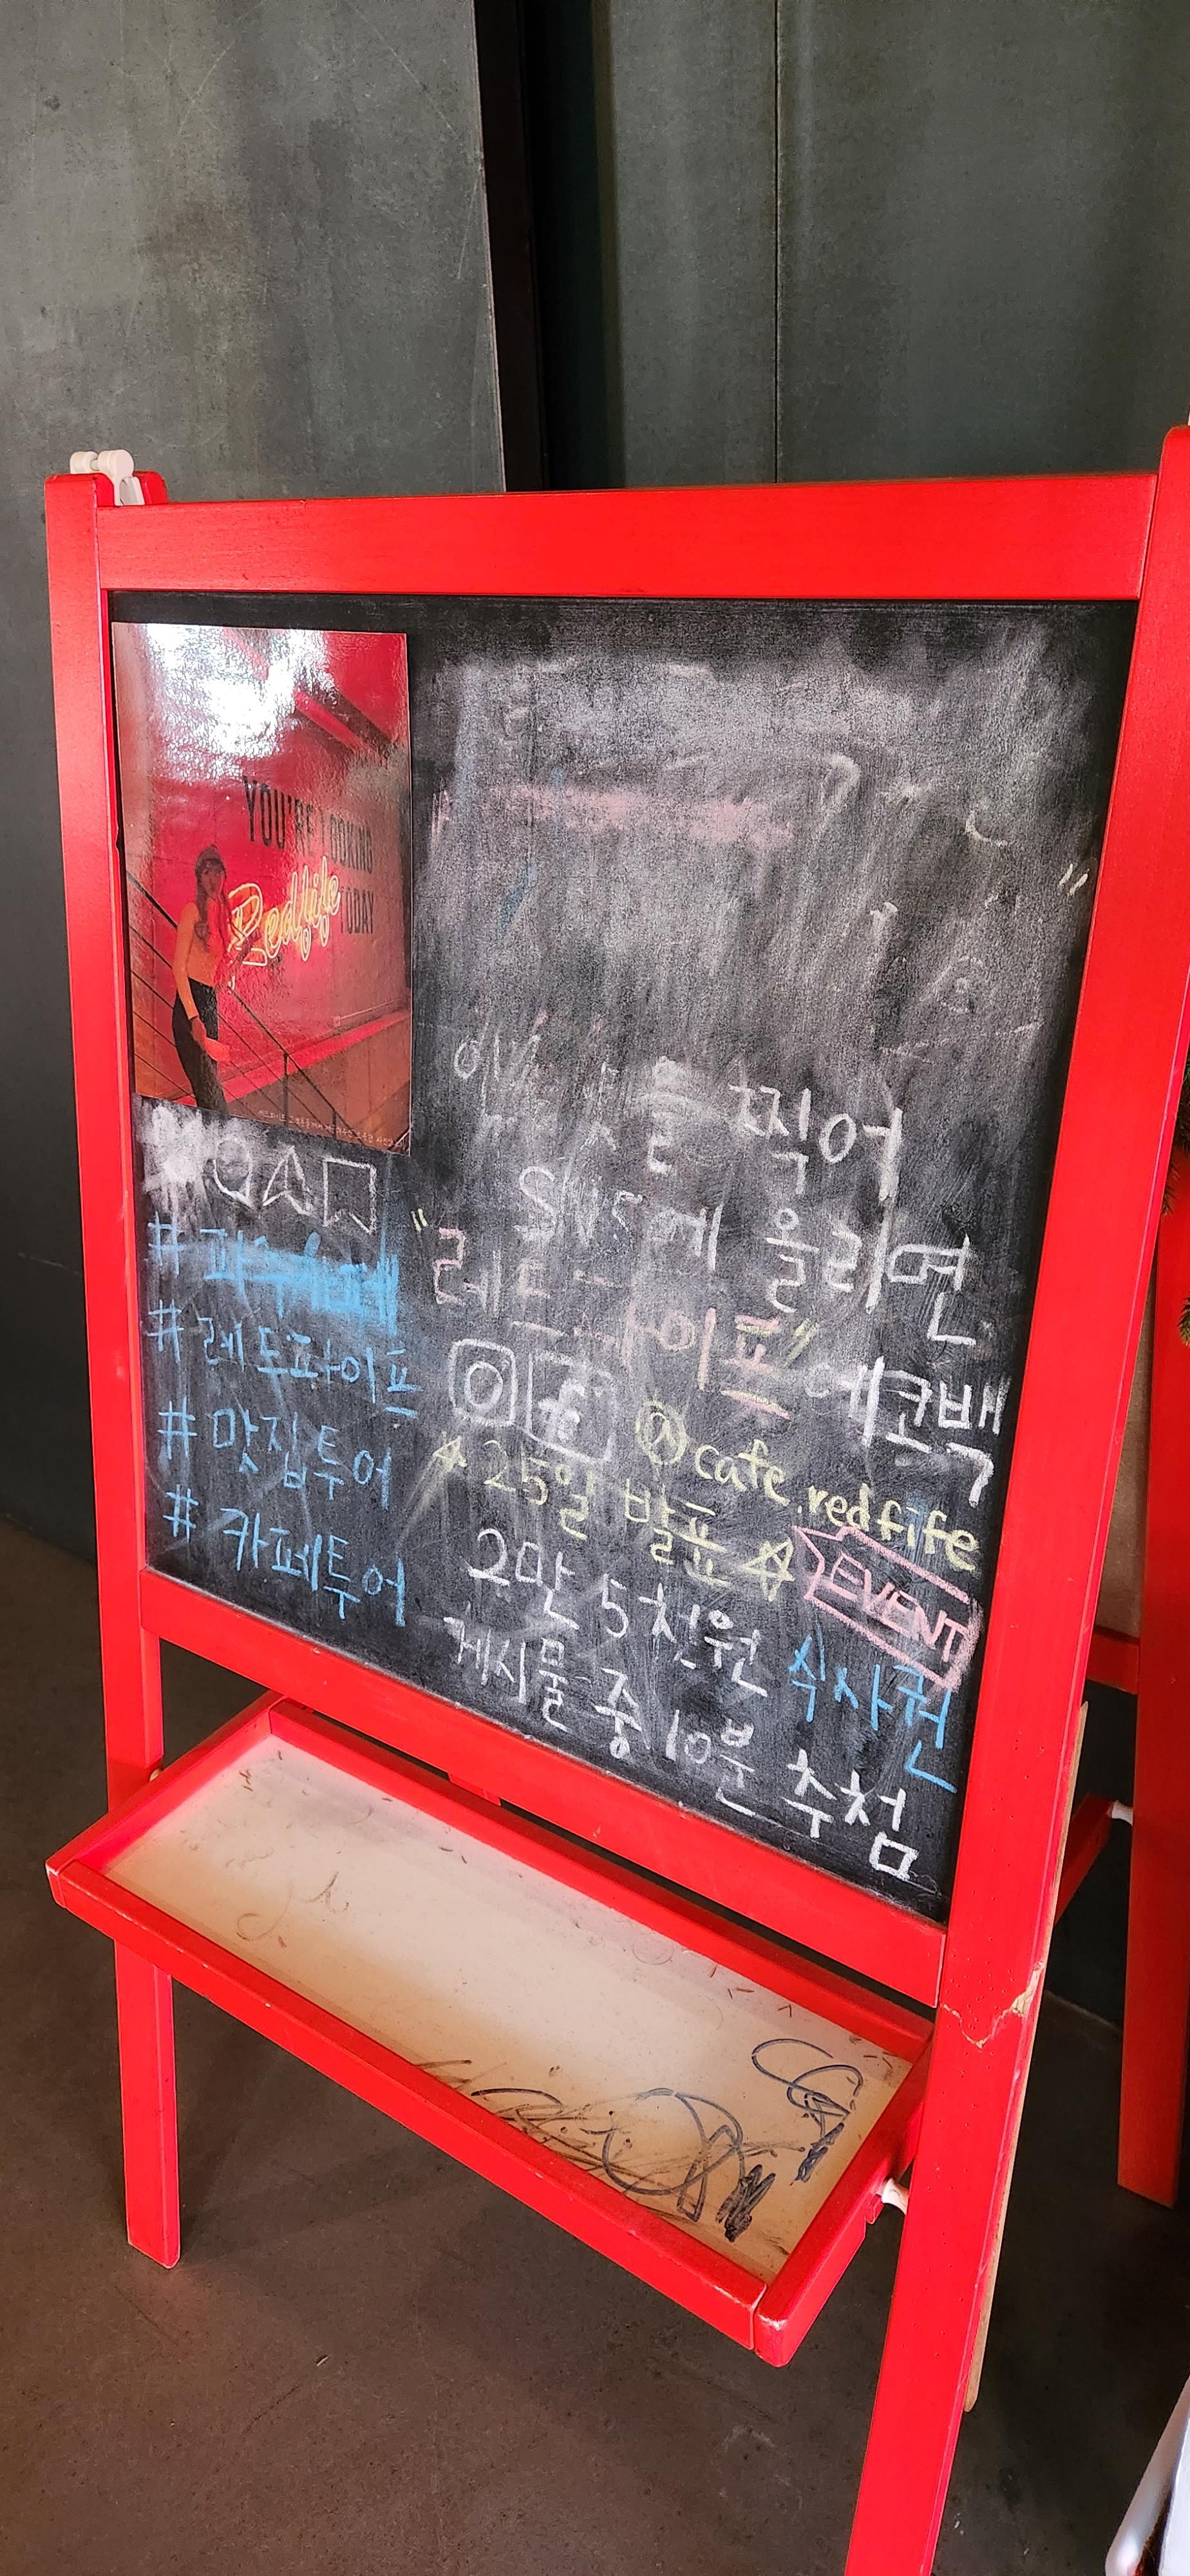 YOU'RE LOOKING
Redfife TODAY
찍어
SNS에 올리면
"레드파이프" 에코백
@cafe.redfife
☆ 25일 발표 ☆
EVENT
2만 5천원 식사권
게시물 중 10분 추첨
#
# 레드파이프
# 맛집투어
# 카페투어